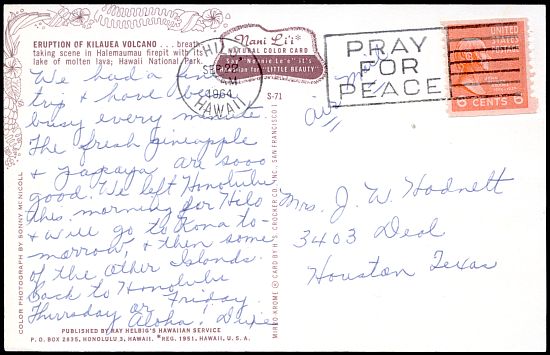 ERUPTION OF KILAUEA VOLCANO . . . breath-
taking scene in Halemaumau firepit with its
lake of molten lava; Hawaii National Park.
Nani Li'i*
NATURAL COLOR CARD
Say "Nonnie Lee-e" it's
Hawaiian for "LITTLE BEAUTY"
HILO
SEP 22
PM
1964
HAWAII
PRAY
FOR
PEACE
UNITED
STATES
POSTAGE
6 CENTS 6
S-71
We had a
trip & have been
busy every minute.
The fresh pineapple
& papaya are sooo
good. We left Honolulu
this morning for Hilo
& will go to Kona to-
morrow, & then some
of the other Islands.
Back to Honolulu
Thursday or Friday.
Aloha!
air mail
Mrs. J. W. Hodnett
3403 Deal
Houston Texas
COLOR PHOTOGRAPH BY SONNY McNICOLL
MIRRO-KROME ® CARD BY H. S. CROCKER CO., INC., SAN FRANCISCO 1
PUBLISHED BY RAY HELBIG'S HAWAIIAN SERVICE
P. O. BOX 2835, HONOLULU 3, HAWAII. *REG. 1951, HAWAII, U. S. A.